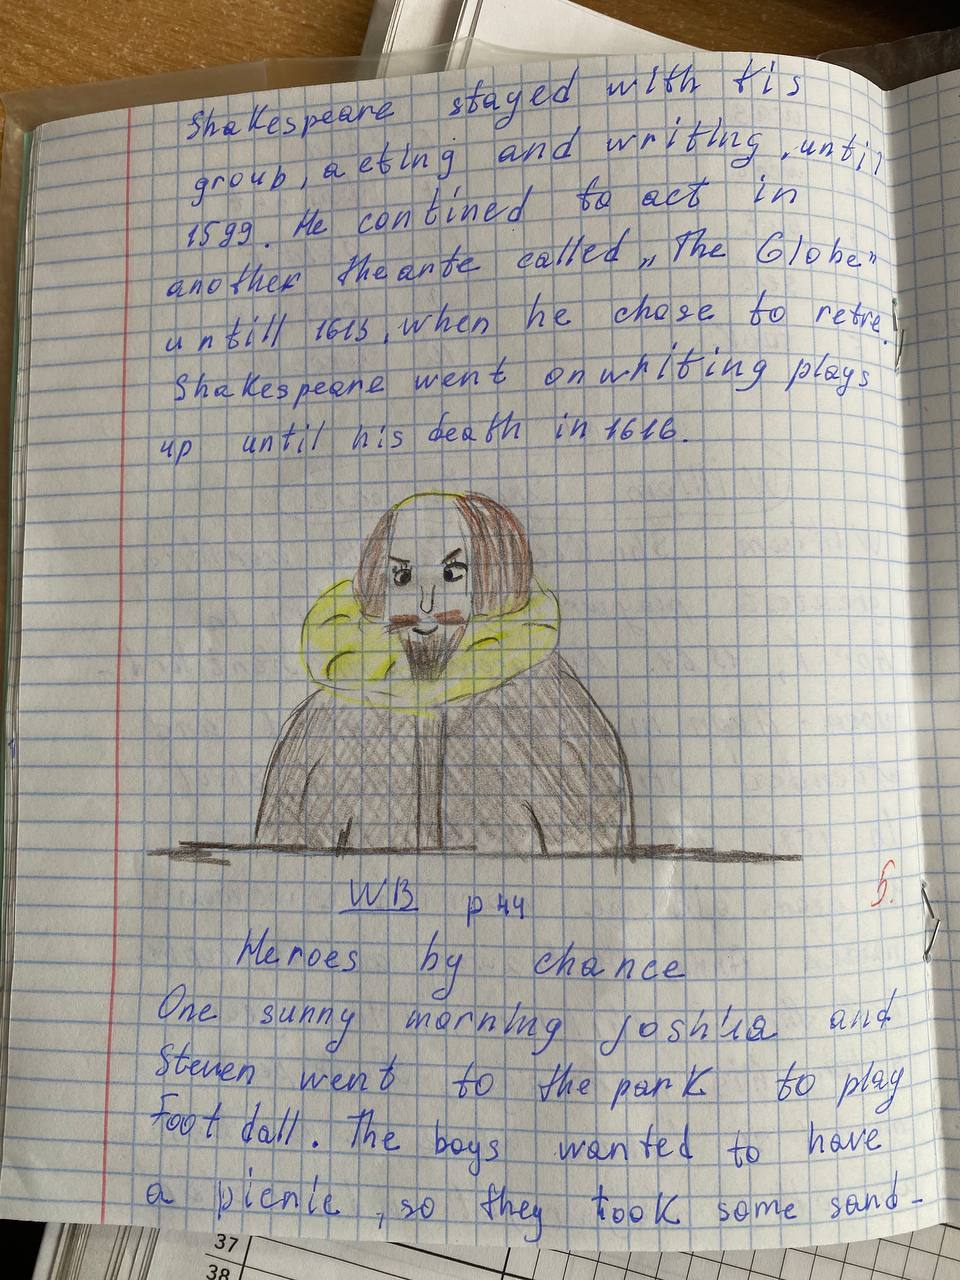 Shakespeare stayed with tis
group, acting and writing, until
1599. He contined to act in
another thearte called „The Globe"
untill 1613, when he chose to retre.
Shakespeare went on writing plays
up until his death in 1616.
WB p 44
5.
Heroes by chance
One sunny morning Joshua and
Steven went to the park to play
Foot dall. The boys wanted to have
a picnic, so they took some sand-
37
38